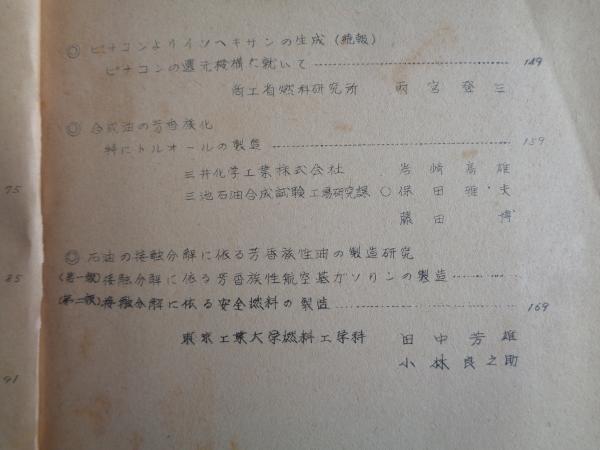 ◎ ピナコンよりイソヘキサンの生成(続報)
ピナコンの還元機構に就いて 149
商工省燃料研究所 雨宮登三
◎ 合成油の芳香族化
特にトルオールの製造 159
三井化学工業株式会社 岩崎高雄
75 三池石油合成試験工場研究課 ○保田雅夫
藤田博
◎ 石油の接触分解に依る芳香族性油の製造研究
85 (第一報)接触分解に依る芳香族性航空基ガソリンの製造
(第二報)接触分解に依る安全燃料の製造 169
東京工業大学燃料工学科 田中芳雄
91 小林良之助